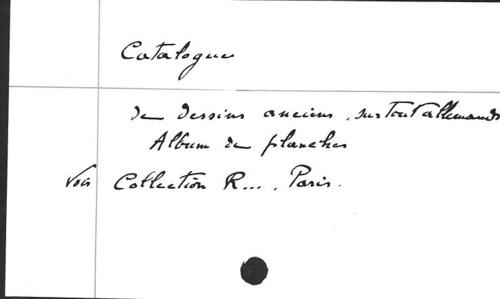 Catalogue
de dessins anciens, surtout allemands
Album de planches
Voir Collection R... , Paris.